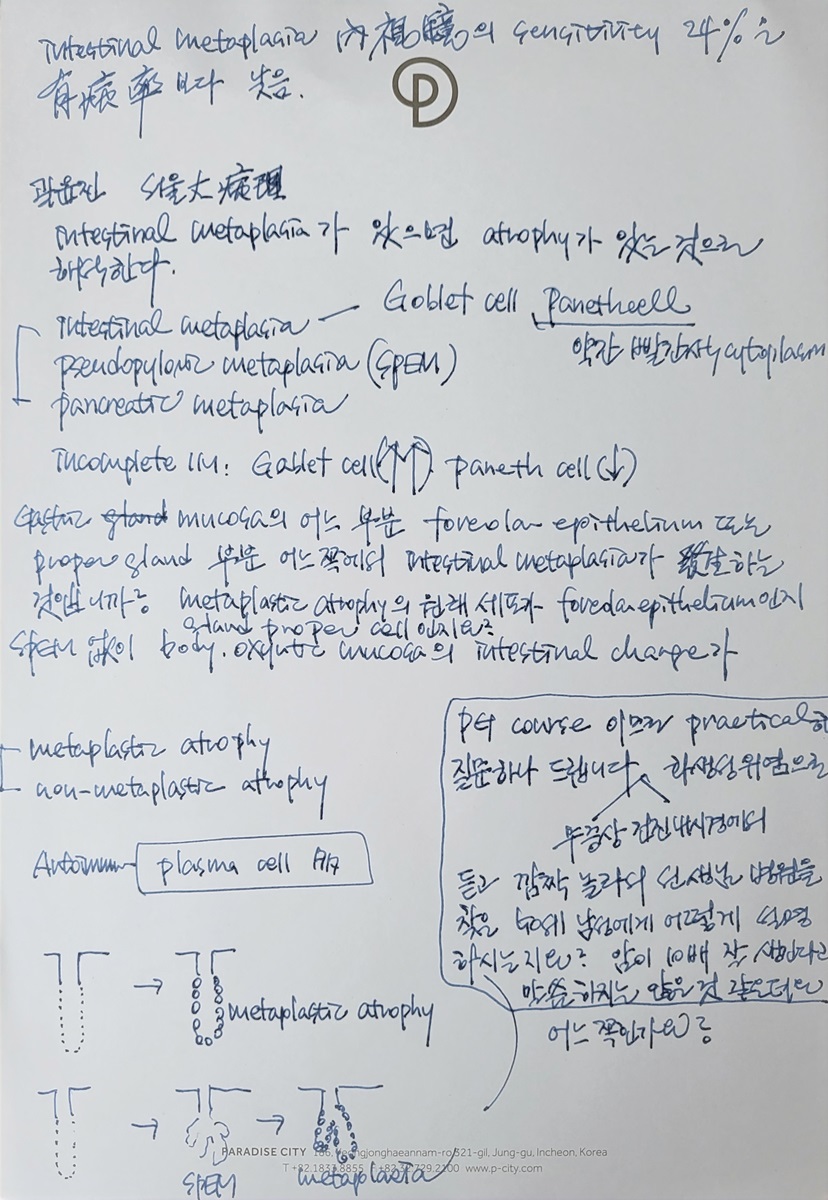 intestinal metaplasia 內視鏡의 sensitivity 24%는
有病率보다 낮음.
곽윤진 서울大病理
intestinal metaplasia가 있으면 atrophy가 있는 것으로
해석한다.
intestinal metaplasia — Goblet cell Paneth cell
약간 빨간색 cytoplasm
pseudopyloric metaplasia (SPEM)
pancreatic metaplasia
incomplete IM: Goblet cell(↑↑) paneth cell(↓)
Gastric gland mucosa의 어느 부분 foveolar epithelium 또는
proper gland 부분 어느쪽에서 intestinal metaplasia가 發生하는
것입니까? metaplastic atrophy의 원래 세포가 foveolar epithelium인지
gland proper cell인지요?
SPEM 없이 body. oxyntic mucosa의 intestinal change가
metaplastic atrophy
non-metaplastic atrophy
Autoimm plasma cell
PG course 이므로 practical한
질문하나 드립니다. 화생성위염으로
무증상 검진내시경에서
듣고 깜짝 놀라서 선생님 병원을
찾은 50세 남성에게 어떻게 설명
하시는지요? 암이 10배 잘 생긴다고
말씀하지는 않을 것 같은데요
어느 쪽인가요?
→ metaplastic atrophy
→ SPEM → metaplasia
PARADISE CITY 186, Yeongjonghaeannam-ro 321-gil, Jung-gu, Incheon, Korea
T +82.1833.8855 F +82.32.729.2100 www.p-city.com